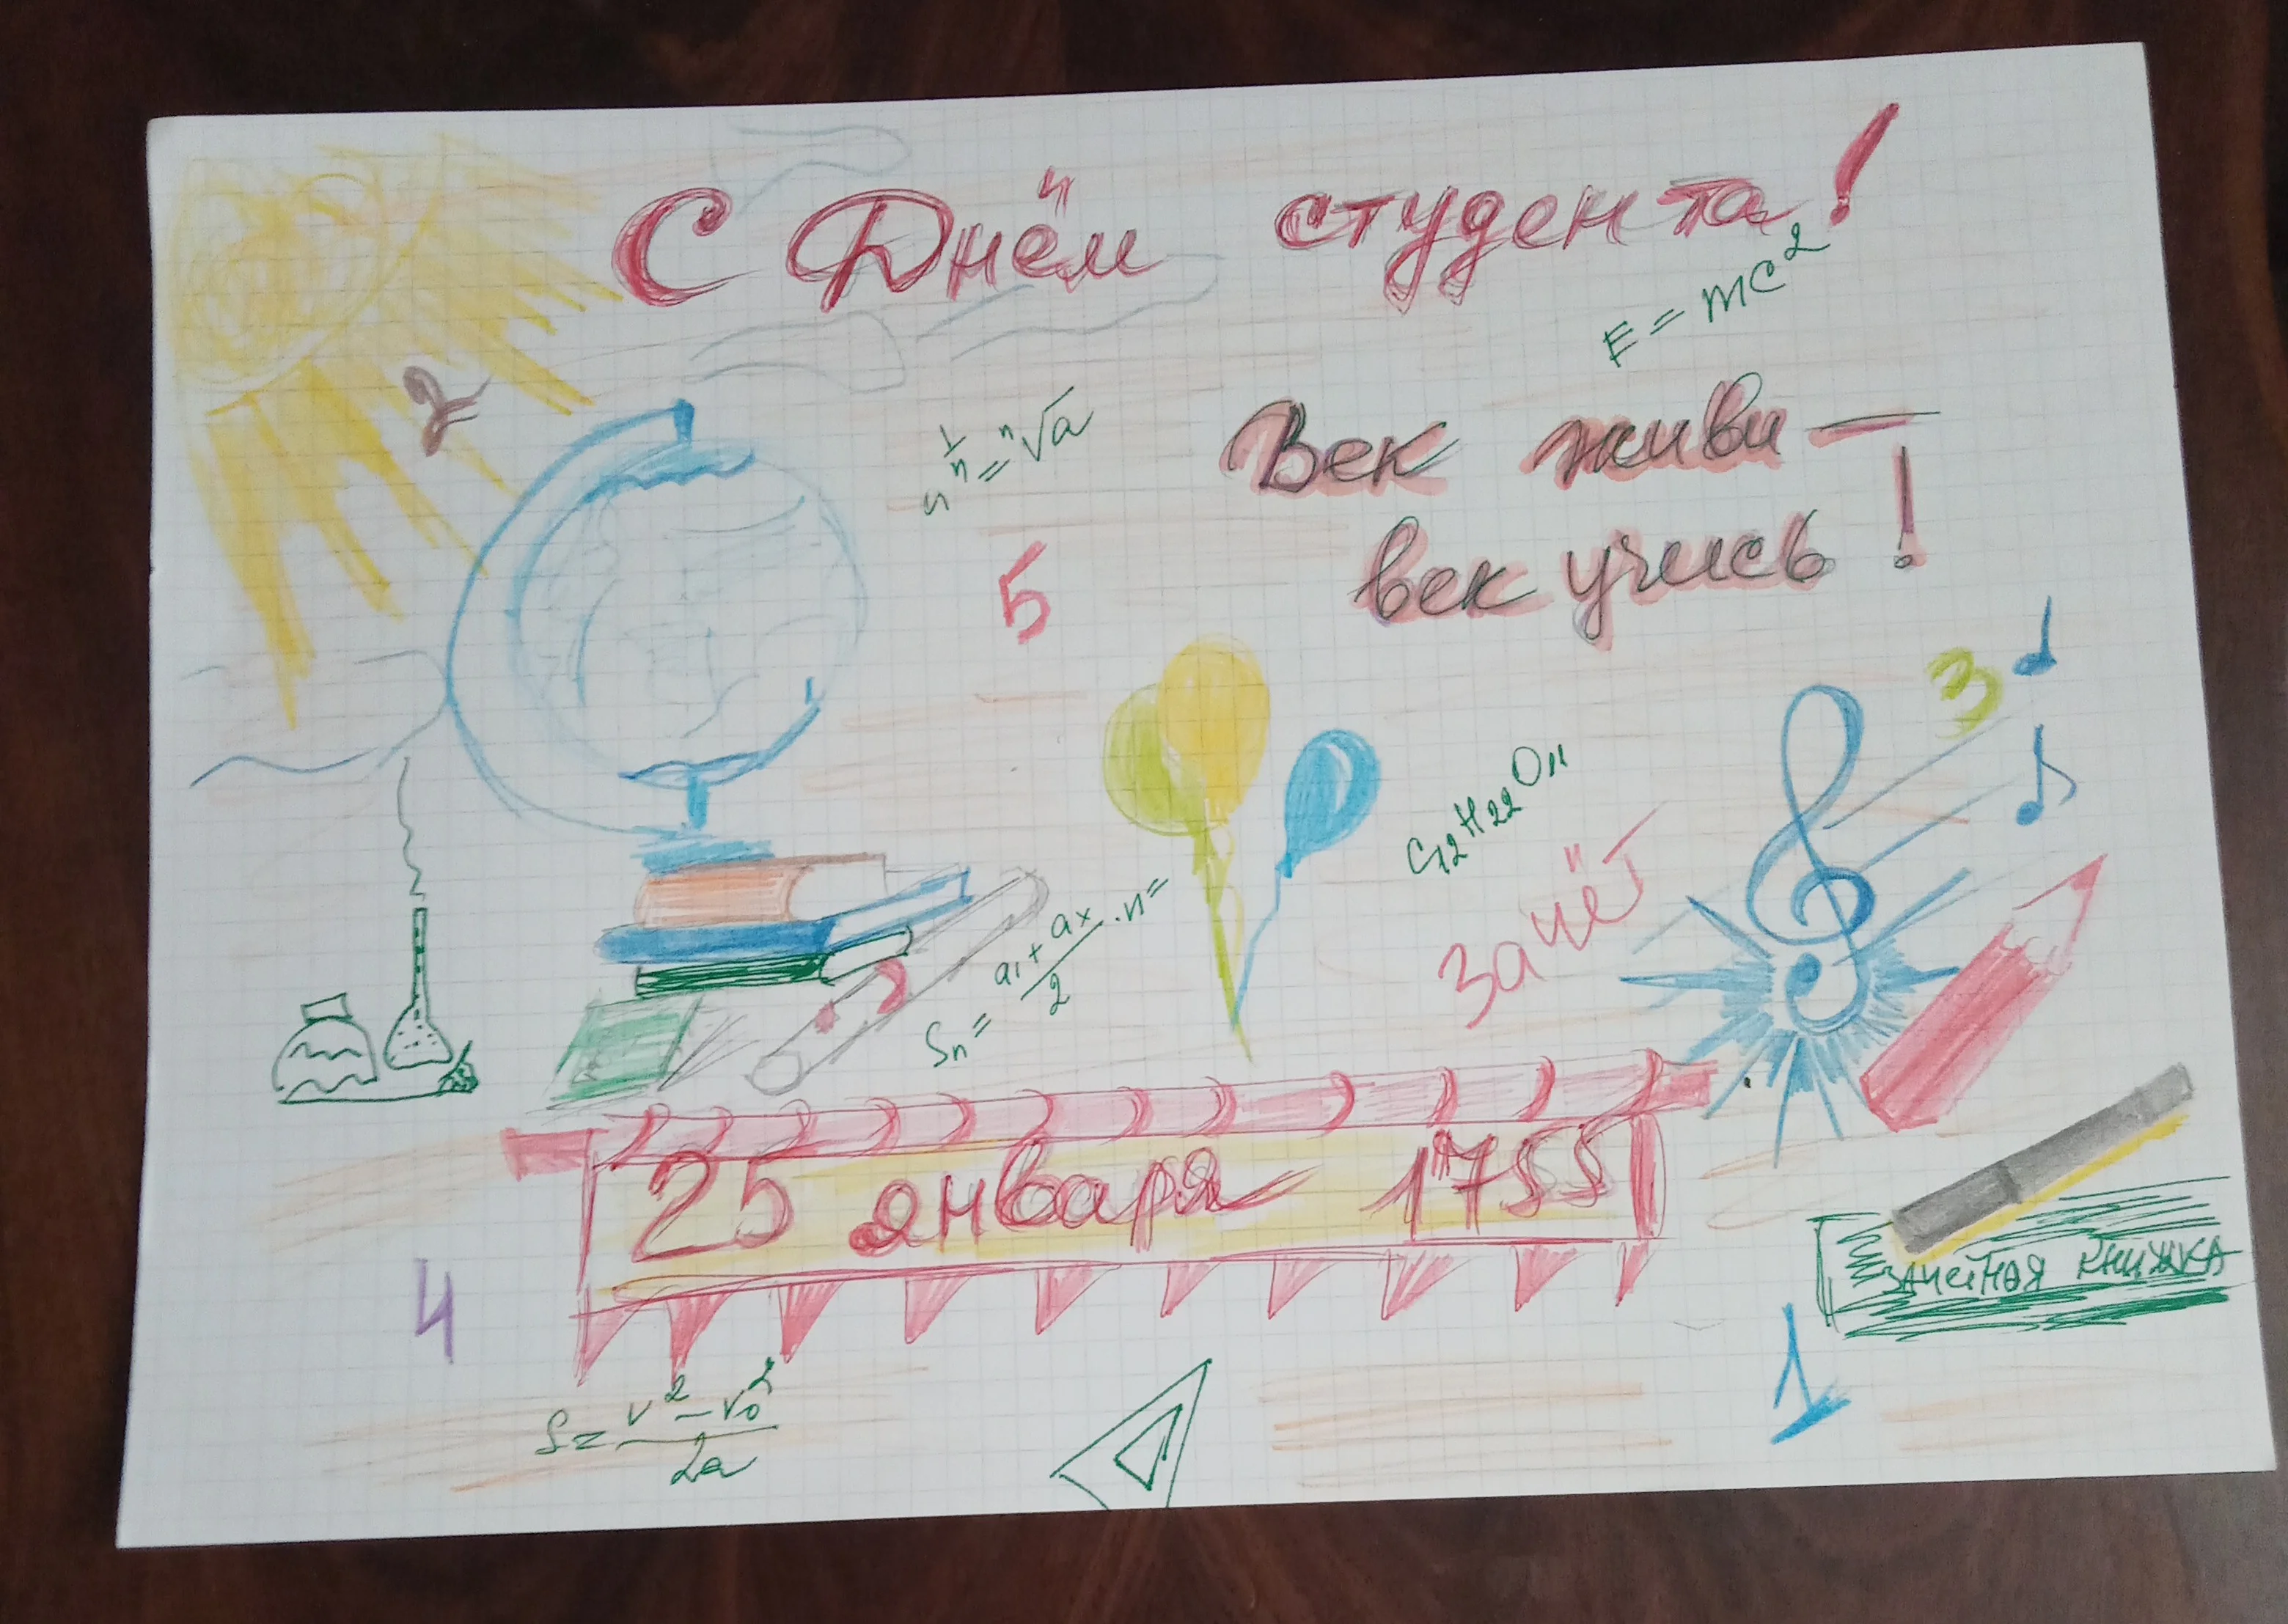 С Днём студента!
E = mc²
2
a^1/n = ⁿ√a
Век живи —
век учись!
5
3
C₁₂H₂₂O₁₁
зачёт
Sₙ = (a₁ + aₓ)/2 · n =
25 января 1755
зачетная книжка
4
1
S = (v² – v₀²)/2a